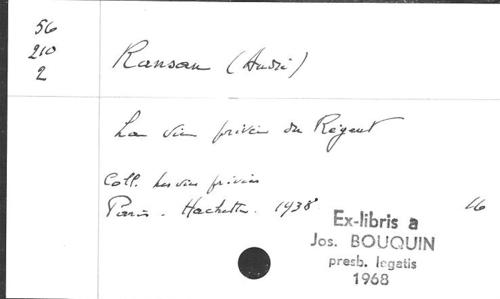 56
210
2
Ransan (André)
La vie privée du Régent
Coll. Les vies privées
Paris. Hachette. 1938
16
Ex-libris a
Jos. BOUQUIN
presb. legatis
1968